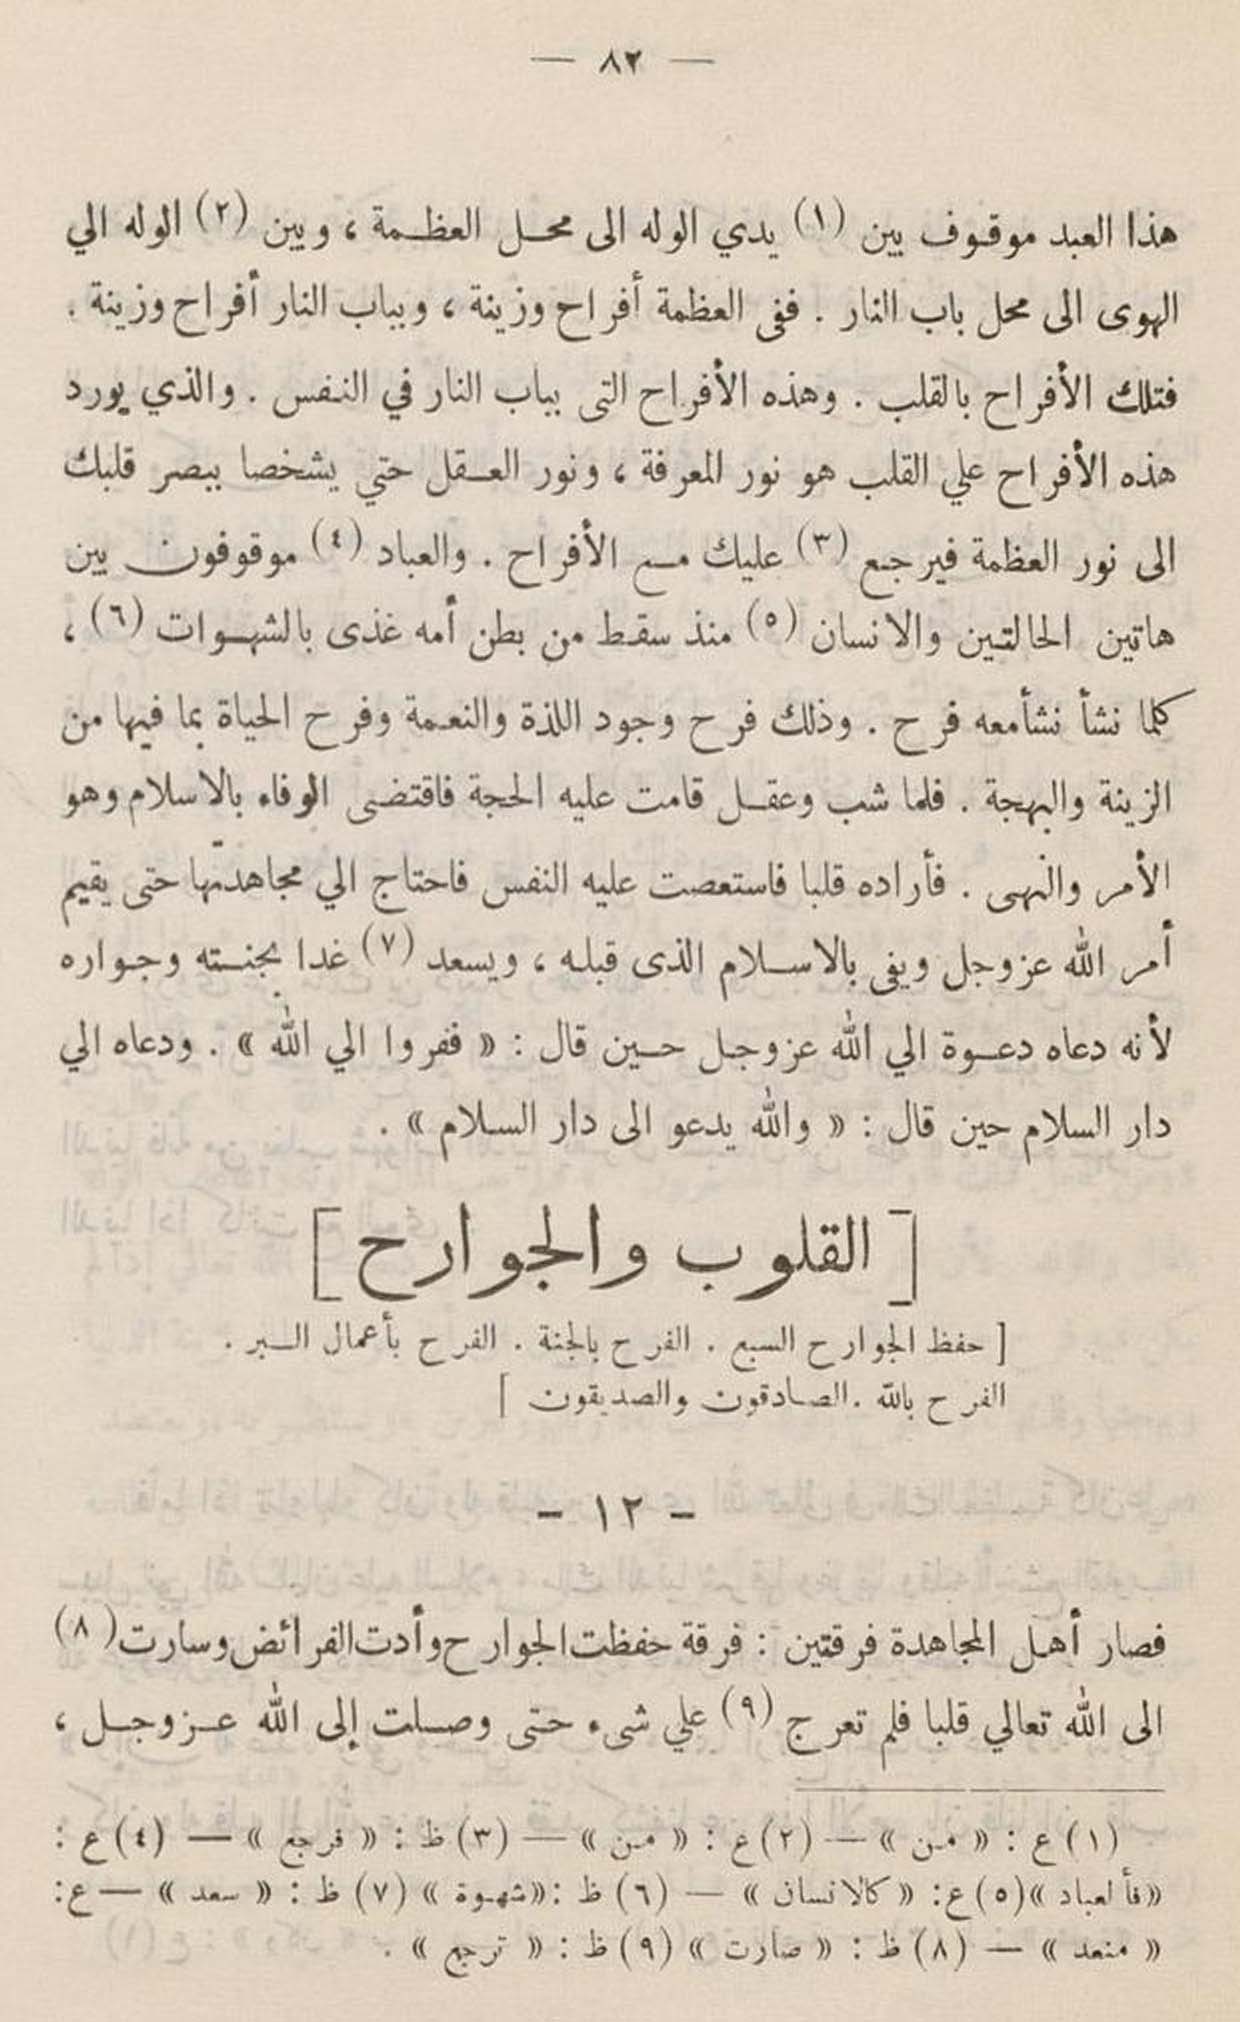 — ٨٢ —
هذا العبد موقوف بين (١) يدي الوله الى محل العظمة ، وبين (٢) الوله الي
الهوى الى محل باب النار . ففى العظمة أفراح وزينة ، وبباب النار أفراح وزينة .
فتلك الأفراح بالقلب . وهذه الأفراح التى بباب النار في النفس . والذي يورد
هذه الأفراح علي القلب هو نور المعرفة ، ونور العقل حتي يشخصا ببصر قلبك
الى نور العظمة فيرجع (٣) عليك مع الأفراح . والعباد (٤) موقوفون بين
هاتين الحالتين والانسان (٥) منذ سقط من بطن أمه غذى بالشهوات (٦) ،
كلما نشأ نشأمعه فرح . وذلك فرح وجود اللذة والنعمة وفرح الحياة بما فيها من
الزينة والبهجة . فلما شب وعقل قامت عليه الحجة فاقتضى الوفاء بالاسلام وهو
الأمر والنهى . فأراده قلبا فاستعصت عليه النفس فاحتاج الي مجاهدتها حتى يقيم
أمر الله عزوجل ويفى بالاسلام الذى قبله ، ويسعد (٧) غدا بجنته وجواره
لأنه دعاه دعوة الي الله عزوجل حين قال : « ففروا الي الله » . ودعاه الي
دار السلام حين قال : « والله يدعو الى دار السلام » .
[ القلوب والجوارح ]
[ حفظ الجوارح السبع . الفرح بالجنة . الفرح بأعمال البر .
الفرح بالله . الصادقون والصديقون ]
- ١٢ -
فصار أهل المجاهدة فرقتين : فرقة حفظت الجوارح وأدت الفرائض وسارت (٨)
الى الله تعالي قلبا فلم تعرج (٩) علي شىء حتى وصلت إلى الله عزوجل ،
(١) ع : « من » — (٢) ع : « من » — (٣) ظ : « فرجع » — (٤) ع :
« فألعباد » (٥) ع: « كالانسان » — (٦) ظ : «شهوة » (٧) ظ : « سعد » — ع:
« منعد » — (٨) ظ : « صارت » (٩) ظ : « ترجع » .